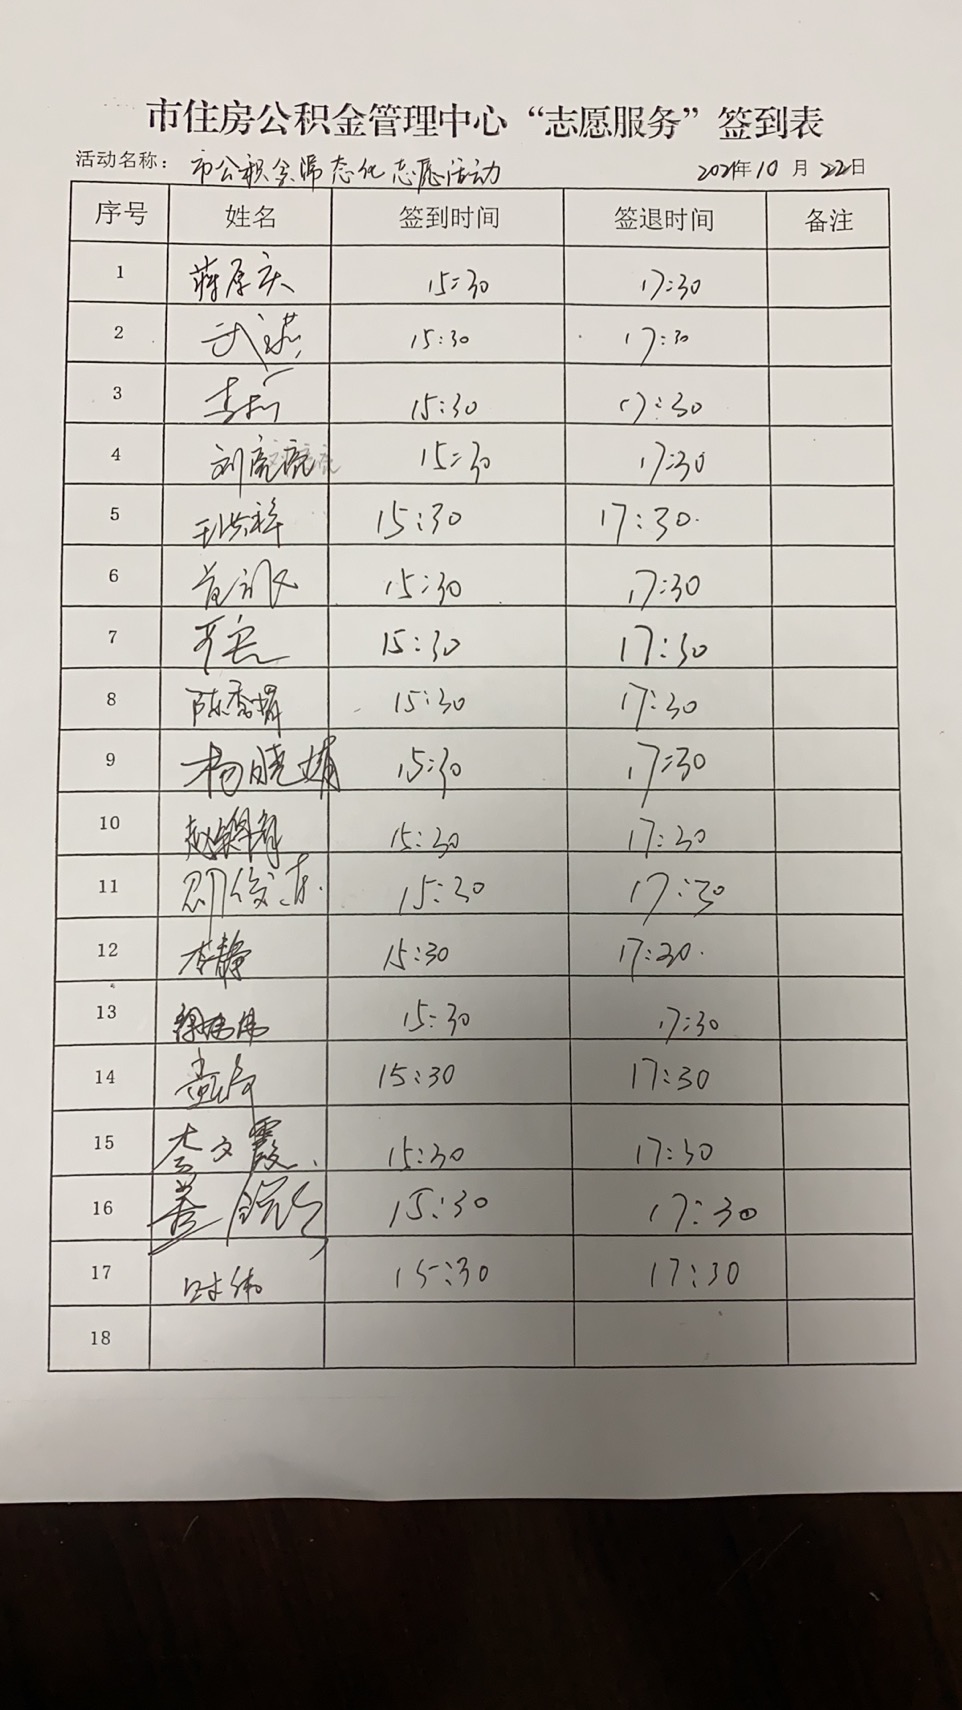 市住房公积金管理中心“志愿服务”签到表
活动名称： 市公积金常态化志愿活动 2021年10月22日
序号 姓名 签到时间 签退时间 备注
1 蒋厚庆 15:30 17:30
2 15:30 17:30
3 李莉 15:30 17:30
4 刘亮亮 15:30 17:30
5 15:30 17:30
6 15:30 17:30
7 15:30 17:30
8 陈香娟 15:30 17:30
9 杨晓婧 15:30 17:30
10 15:30 17:30
11 邵俊杰 15:30 17:30
12 李静 15:30 17:30
13 15:30 17:30
14 15:30 17:30
15 李文霞 15:30 17:30
16 15:30 17:30
17 时伟 15:30 17:30
18